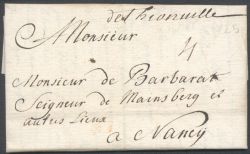 de thionville
A Monsieur
4
Monsieur de Barbarat
Seigneur de Mainsberg et
autres Lieux
a Nancy